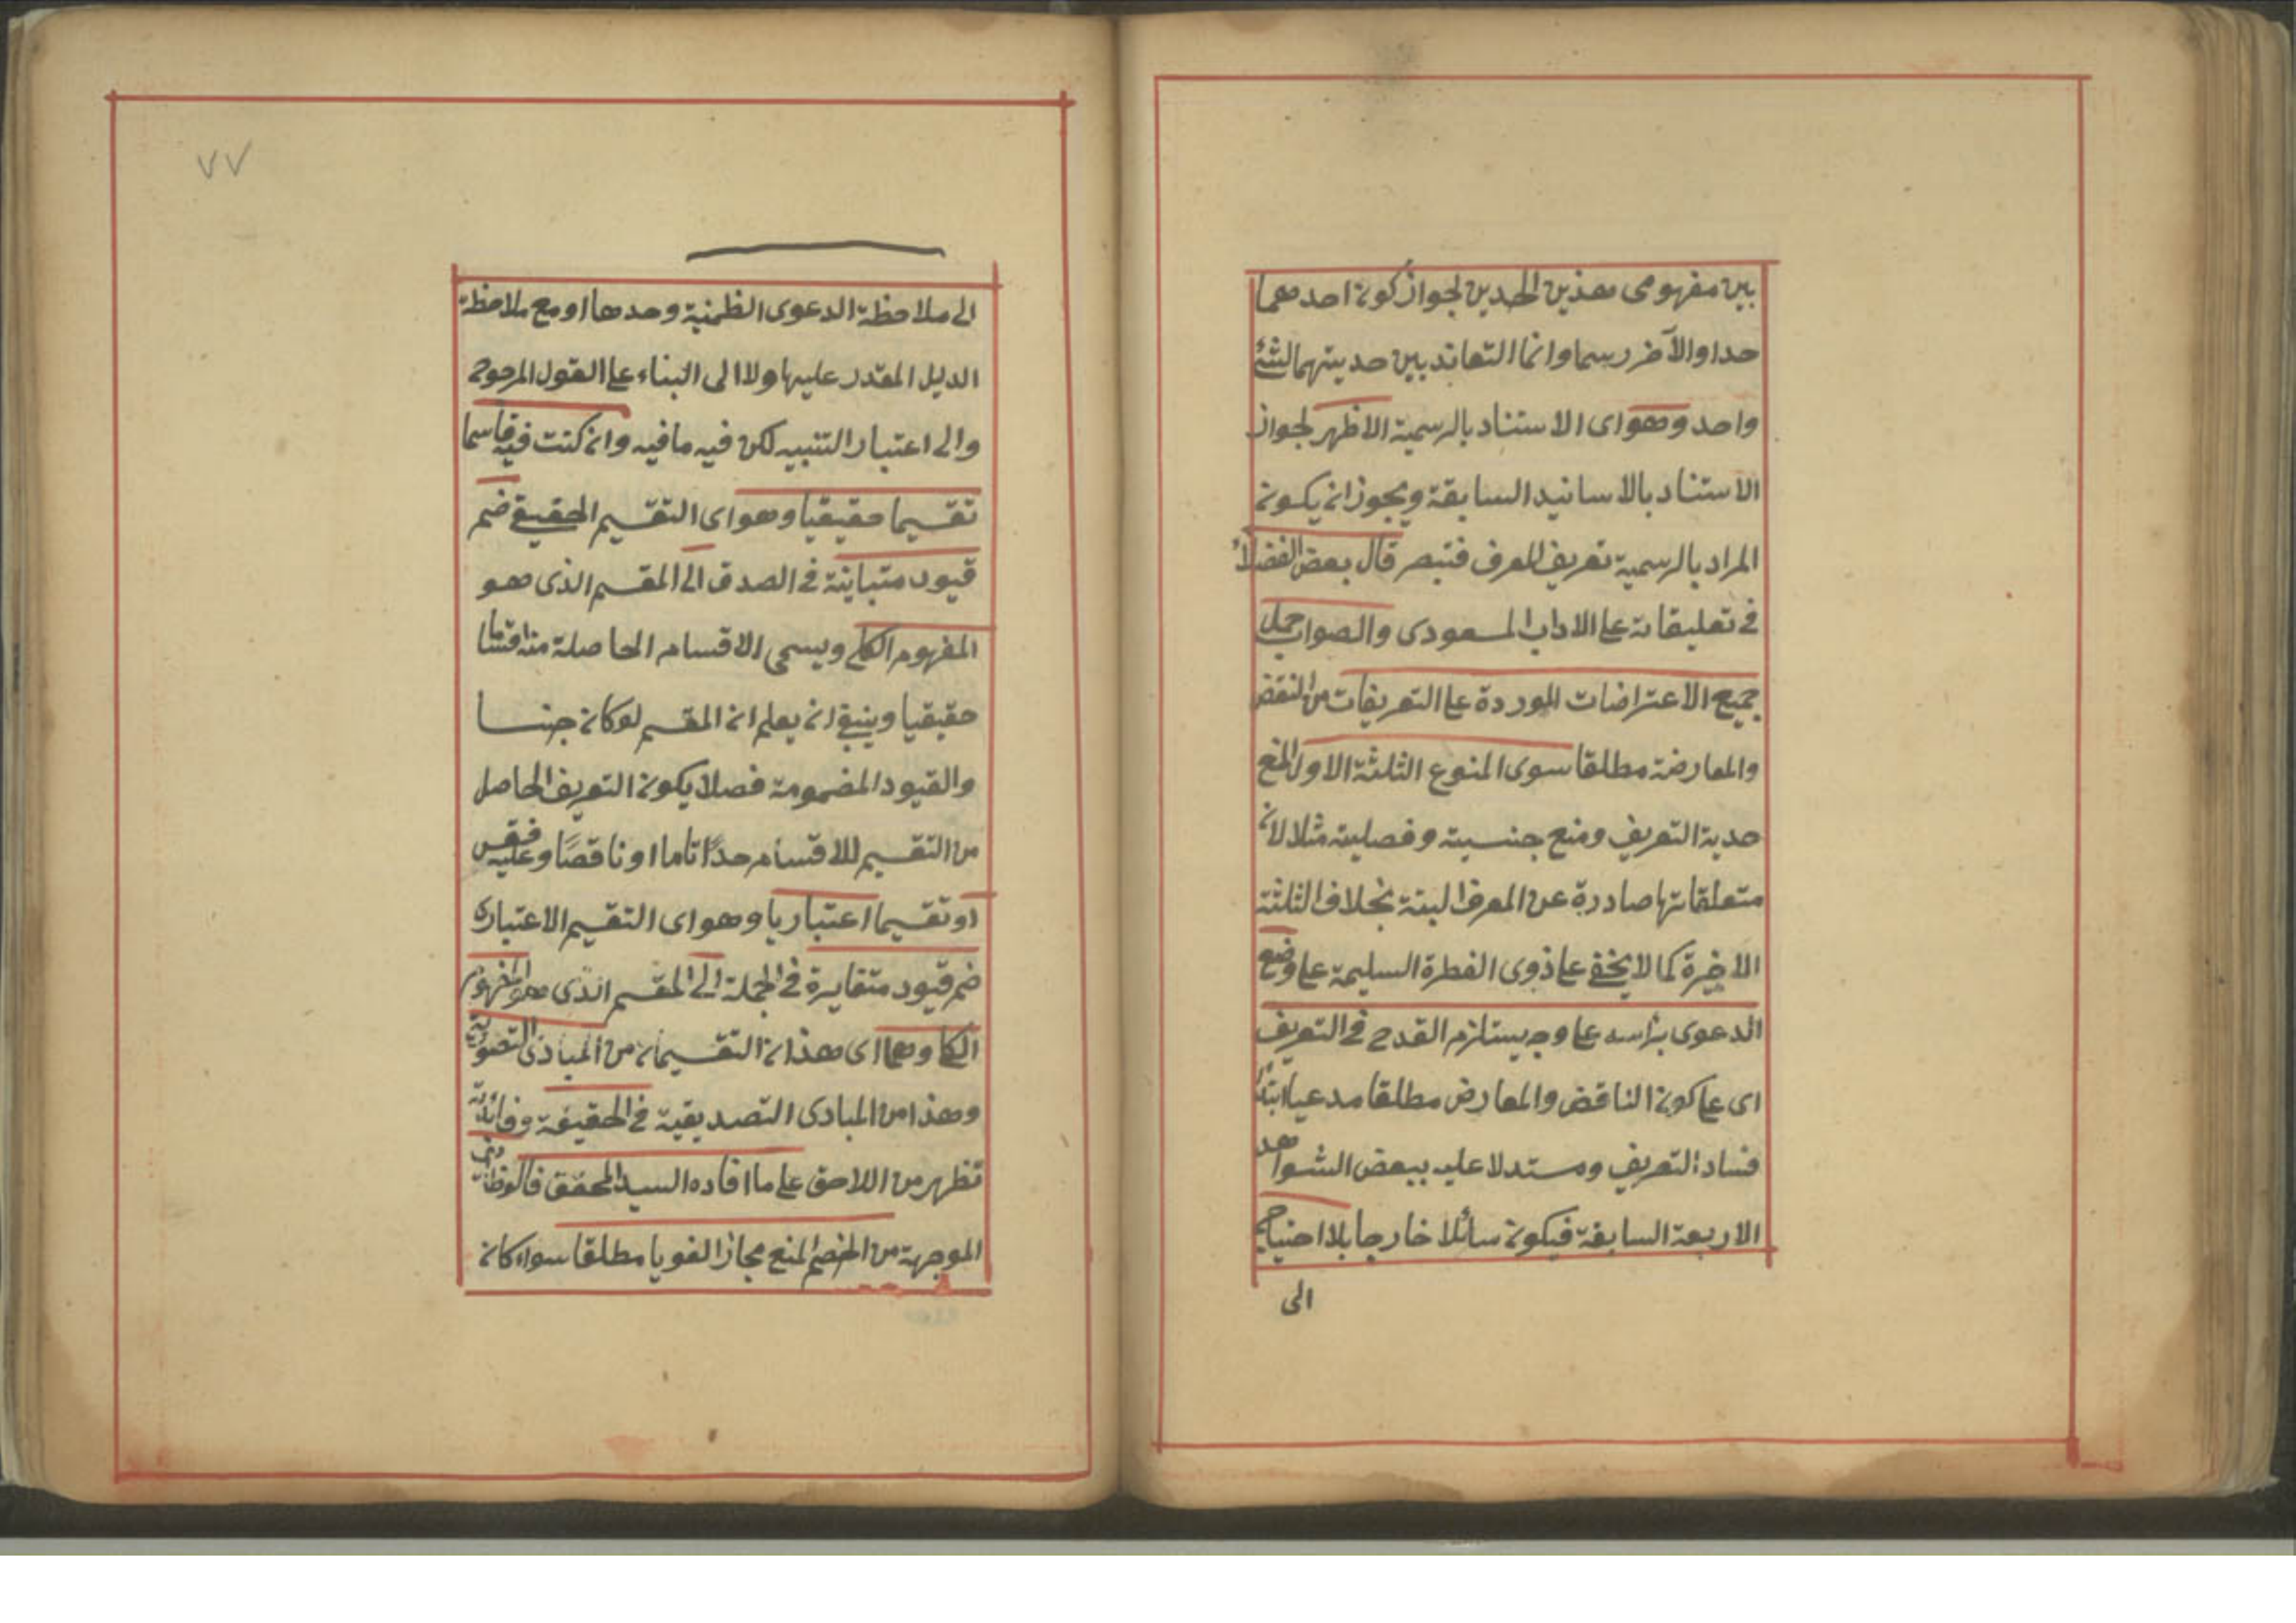 بين مفهومى هذين الحدين لجواز كون احدهما
حدا والآخر رسما وانما التعاند بين حديتهما لشئ
واحد وهو اى الاستناد بالرسمية الاظهر لجواز
الاستناد بالاسانيد السابقة ويجوز ان يكون
المراد بالرسمية تعريف المعرف فتبصر قال بعض الفضلاء
فى تعليقاته على الاداب المسعودى والصواب حمل
جميع الاعتراضات الموردة على التعريفات من النقض
والمعارضة مطلقا سوى المنوع الثلثة الاول المنع
حدية التعريف ومنع جنسيته وفصليته مثلا لان
متعلقاتها صادرة عن المعرف البتة بخلاف الثلثة
الاخيرة كما لا يخفى على ذوى الفطرة السليمة على وضع
الدعوى برأسه على وجه يستلزم القدح فى التعريف
اى على كون الناقض والمعارض مطلقا مدعيا ابتداء
فساد التعريف ومستدلا عليه ببعض الشواهد
الاربعة السابقة فيكون سائلا خارجا بلا احتياج
الى
٧٧
الى ملاحظة الدعوى الظمنية وحدها او مع ملاحظة
الدليل المقدر عليها ولا الى البناء على القول المرجوح
والى اعتبار التنبيه لكن فيه ما فيه وان كنت فيه قاسما
تقسيما حقيقيا وهو اى التقسيم الحقيقى ضم
قيود متباينة فى الصدق الى المقسم الذى هو
المفهوم الكلى ويسمى الاقسام الحاصلة منه اقساما
حقيقيا وينبغى ان يعلم ان المقسم لو كان جنسا
والقيود المضمومة فصلا يكون التعريف الحاصل
من التقسيم للاقسام حدًا تاما او ناقصًا وعليه فقس
او تقسيما اعتباريا وهو اى التقسيم الاعتبارى
ضم قيود متغايرة فى الجملة الى المقسم الذى هو المفهوم
الكلى وهما اى هذان التقسيمان من المبادى التصورية
وهذا من المبادى التصديقية فى الحقيقة وفائدته
تظهر من اللاحق على ما افاده السيد المحقق فالوظائف
الموجهة من الخصم المنع مجازا لغويا مطلقا سواء كان